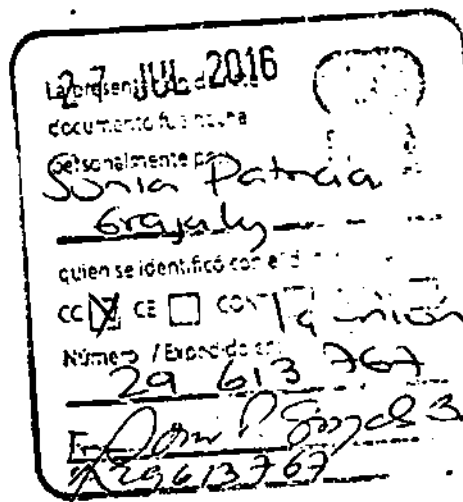 27 JUL 2016
La presentación de este
documento fue hecha
personalmente por
Sonia Patricia
Grajales
quien se identificó con el d
CC X CE CON La Unión
Número / Expedido en
29 613 767
29613767